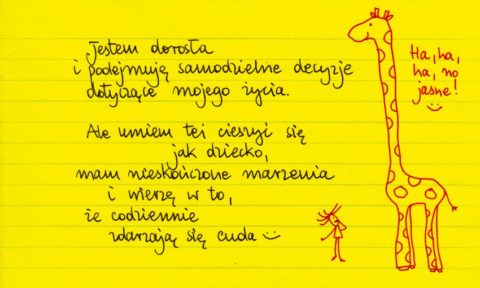 Jestem dorosła
i podejmuję samodzielne decyzje
dotyczące mojego życia.
Ale umiem też cieszyć się
jak dziecko,
mam nieskończone marzenia
i wierzę w to,
że codziennie
zdarzają się cuda
Ha, ha,
ha, no
jasne!